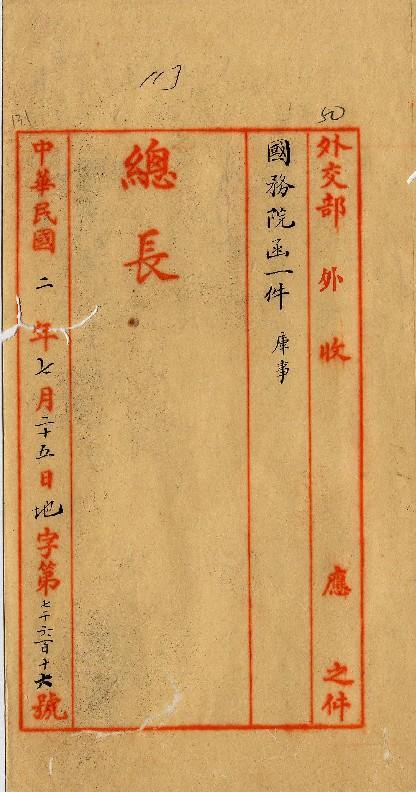 113
50
131
外交部外收應之件
國務院函一件 庫事
總長
中華民國二年七月二十五日地字第七千六百十六號